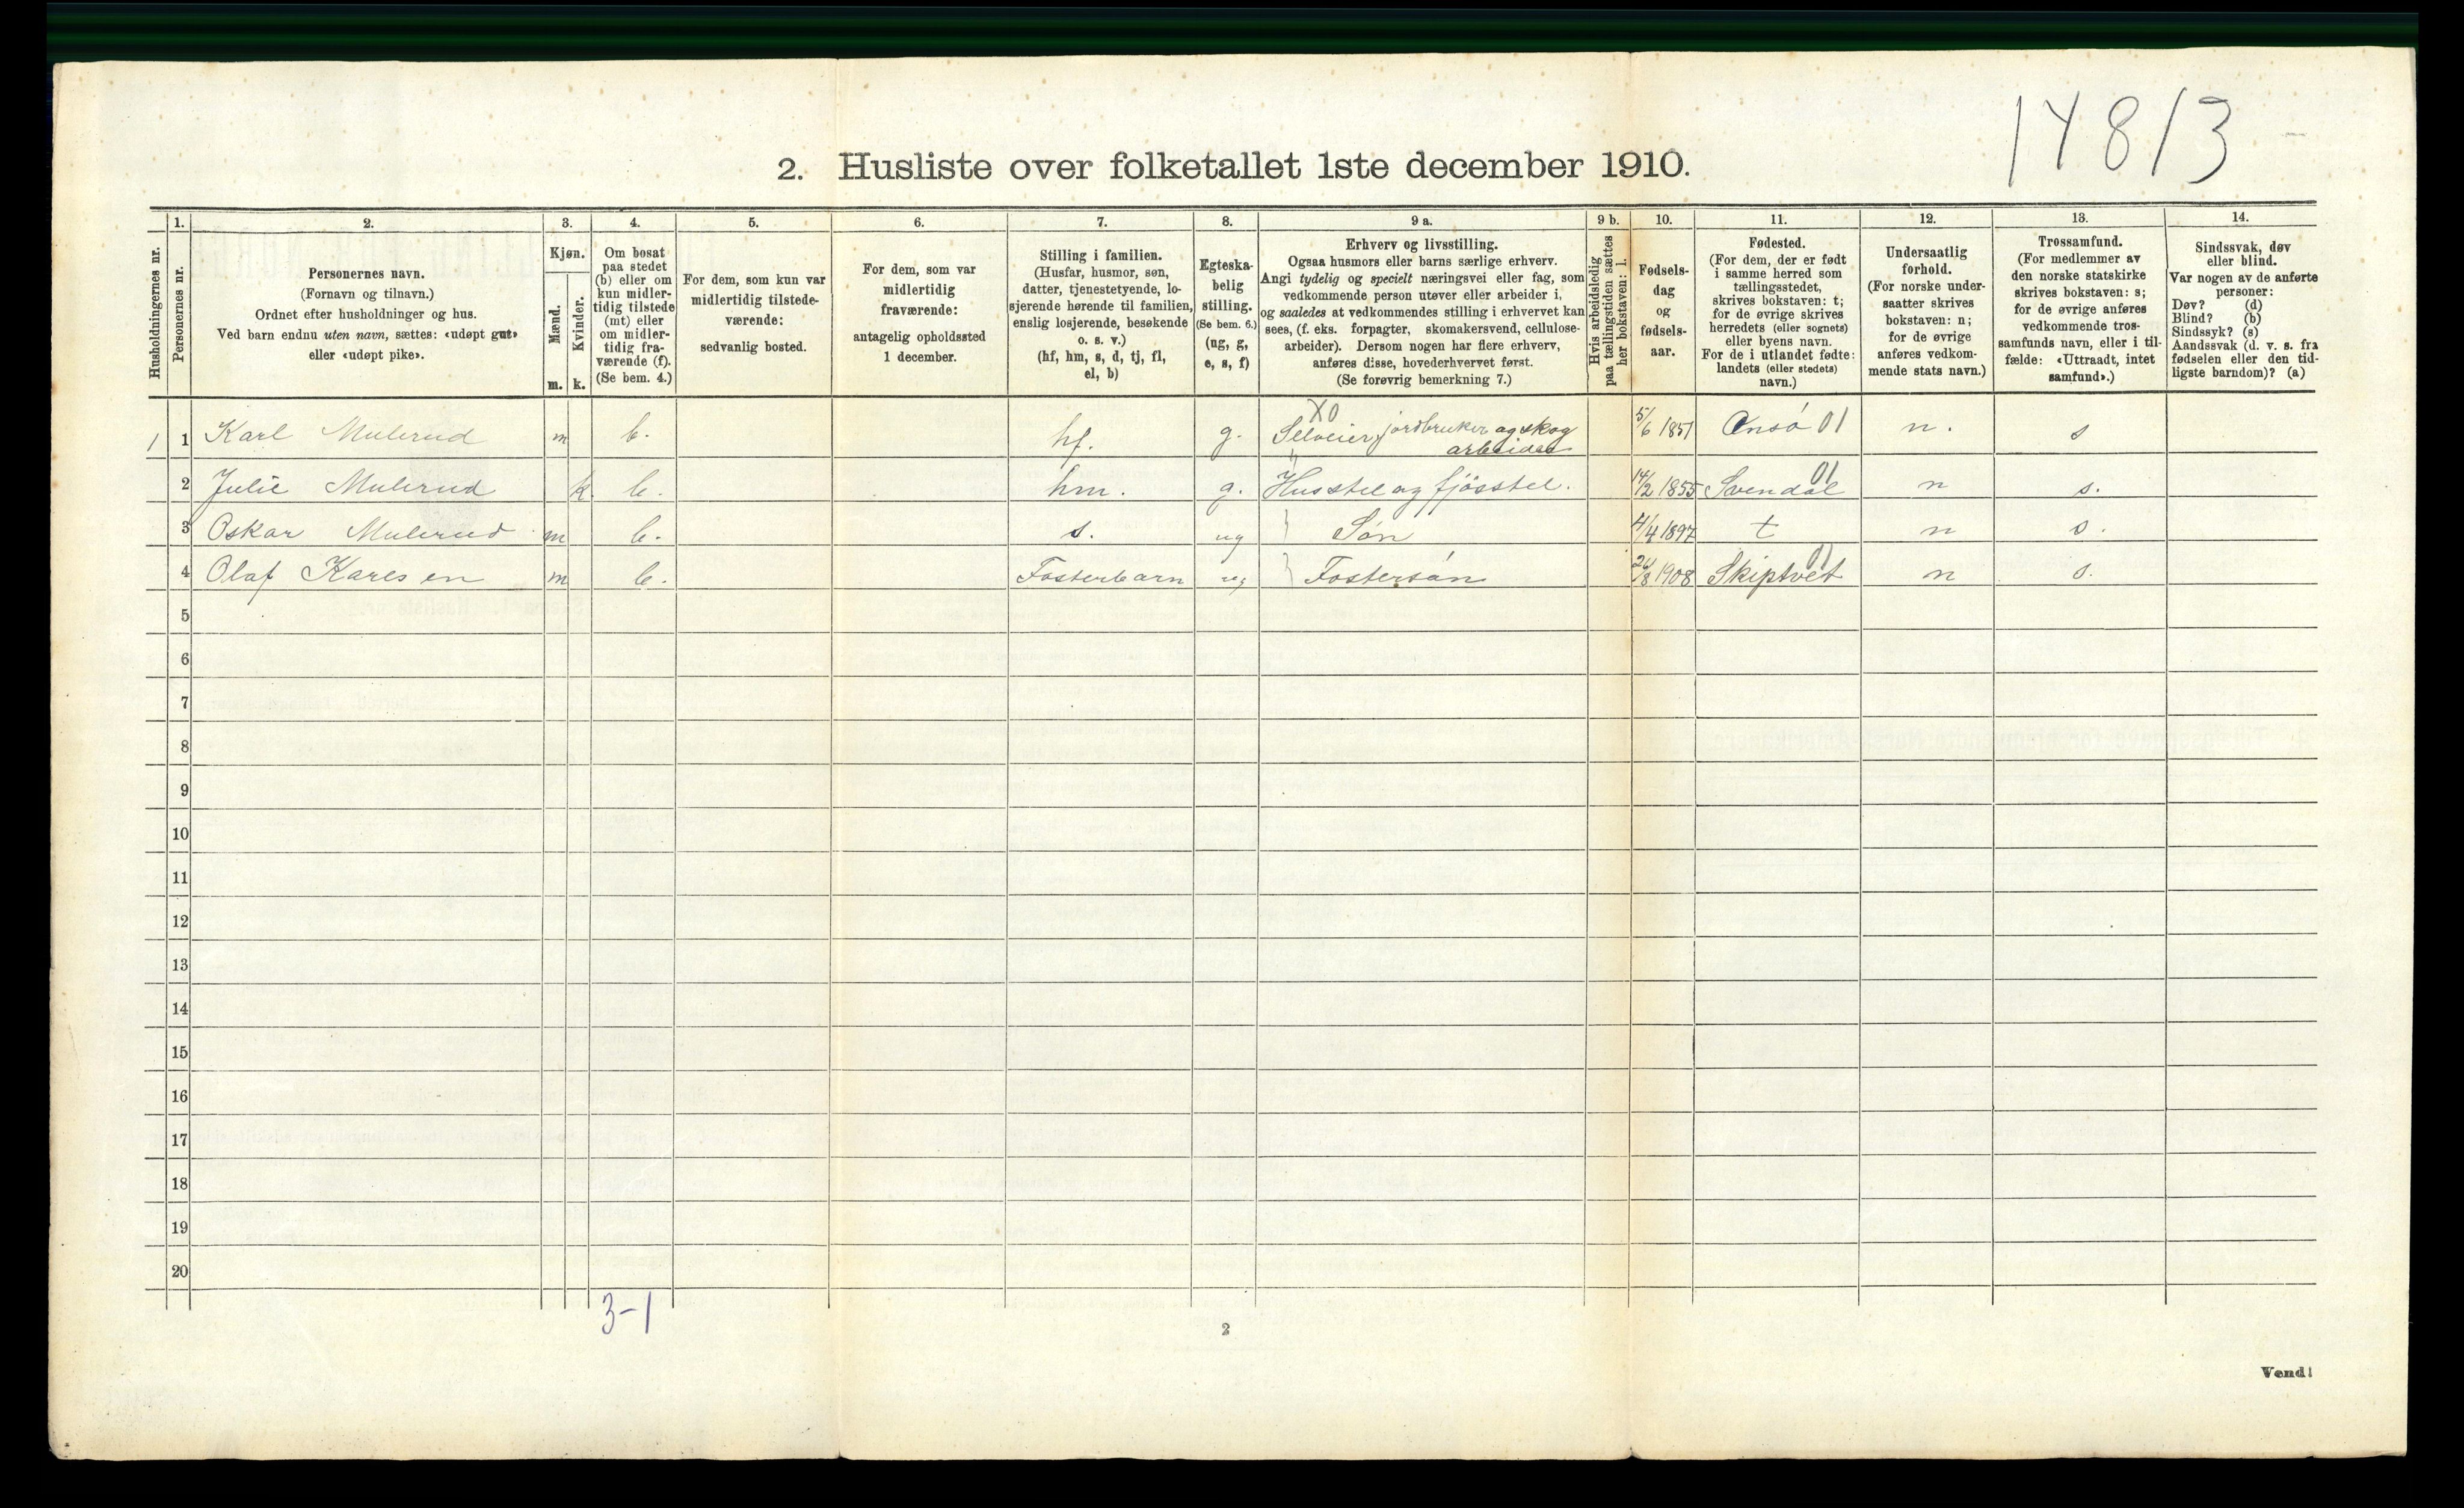 14813
2. Husliste over folketallet 1ste december 1910.
Husholdningernes nr.
1.
Personernes nr.
2.
Personernes navn.
(Fornavn og tilnavn.)
Ordnet efter husholdninger og hus.
Ved barn endnu uten navn, sættes: «udøpt gut»
eller «udøpt pike».
3.
Kjøn.
Mænd.
m.
Kvinder.
k.
4.
Om bosat
paa stedet
(b) eller om
kun midler-
tidig tilstede
(mt) eller
om midler-
tidig fra-
værende (f).
(Se bem. 4.)
5.
For dem, som kun var
midlertidig tilstede-
værende:
sedvanlig bosted.
6.
For dem, som var
midlertidig
fraværende:
antagelig opholdssted
1 december.
7.
Stilling i familien.
(Husfar, husmor, søn,
datter, tjenestetyende, lo-
sjerende hørende til familien,
enslig losjerende, besøkende
o. s. v.)
(hf, hm, s, d, tj, fl,
el, b)
8.
Egteska-
belig
stilling.
(Se bem. 6.)
(ug, g,
e, s, f)
9 a.
Erhverv og livsstilling.
Ogsaa husmors eller barns særlige erhverv.
Angi tydelig og specielt næringsvei eller fag, som
vedkommende person utøver eller arbeider i,
og saaledes at vedkommendes stilling i erhvervet kan
sees, (f. eks. forpagter, skomakersvend, cellulose-
arbeider). Dersom nogen har flere erhverv,
anføres disse, hovederhvervet først.
(Se forøvrig bemerkning 7.)
9 b.
Hvis arbeidsledig
paa tællingstiden sættes
her bokstaven: l.
10.
Fødsels-
dag
og
fødsels-
aar.
11.
Fødested.
(For dem, der er født
i samme herred som
tællingsstedet,
skrives bokstaven: t;
for de øvrige skrives
herredets (eller sognets)
eller byens navn.
For de i utlandet fødte:
landets (eller stedets)
navn.)
12.
Undersaatlig
forhold.
(For norske under-
saatter skrives
bokstaven: n;
for de øvrige
anføres vedkom-
mende stats navn.)
13.
Trossamfund.
(For medlemmer av
den norske statskirke
skrives bokstaven: s;
for de øvrige anføres
vedkommende tros-
samfunds navn, eller i til-
fælde: «Uttraadt, intet
samfund».)
14.
Sindssvak, døv
eller blind.
Var nogen av de anførte
personer:
Døv? (d)
Blind? (b)
Sindssyk? (s)
Aandssvak (d. v. s. fra
fødselen eller den tid-
ligste barndom)? (a)
1 1 Karl Mulerud m b. hf. g. X0 Selveier, jordbruker og skog arbeider 5/6 1851 Onsø 01 n. s
2 Julie Mulerud k. b. hm. g. Husstel og fjøsstel. 14/2 1855 Svendal 01 n s.
3 Oskar Mulerud m b. s. ug Søn 4/4 1897 t n s.
4 Olaf Karlsen m b. Fosterbarn ug Fostersøn /8 1908 Skiptvet 01 n s.
5
6
7
8
9
10
11
12
13
14
15
16
17
18
19
20
3-1
2
Vend!